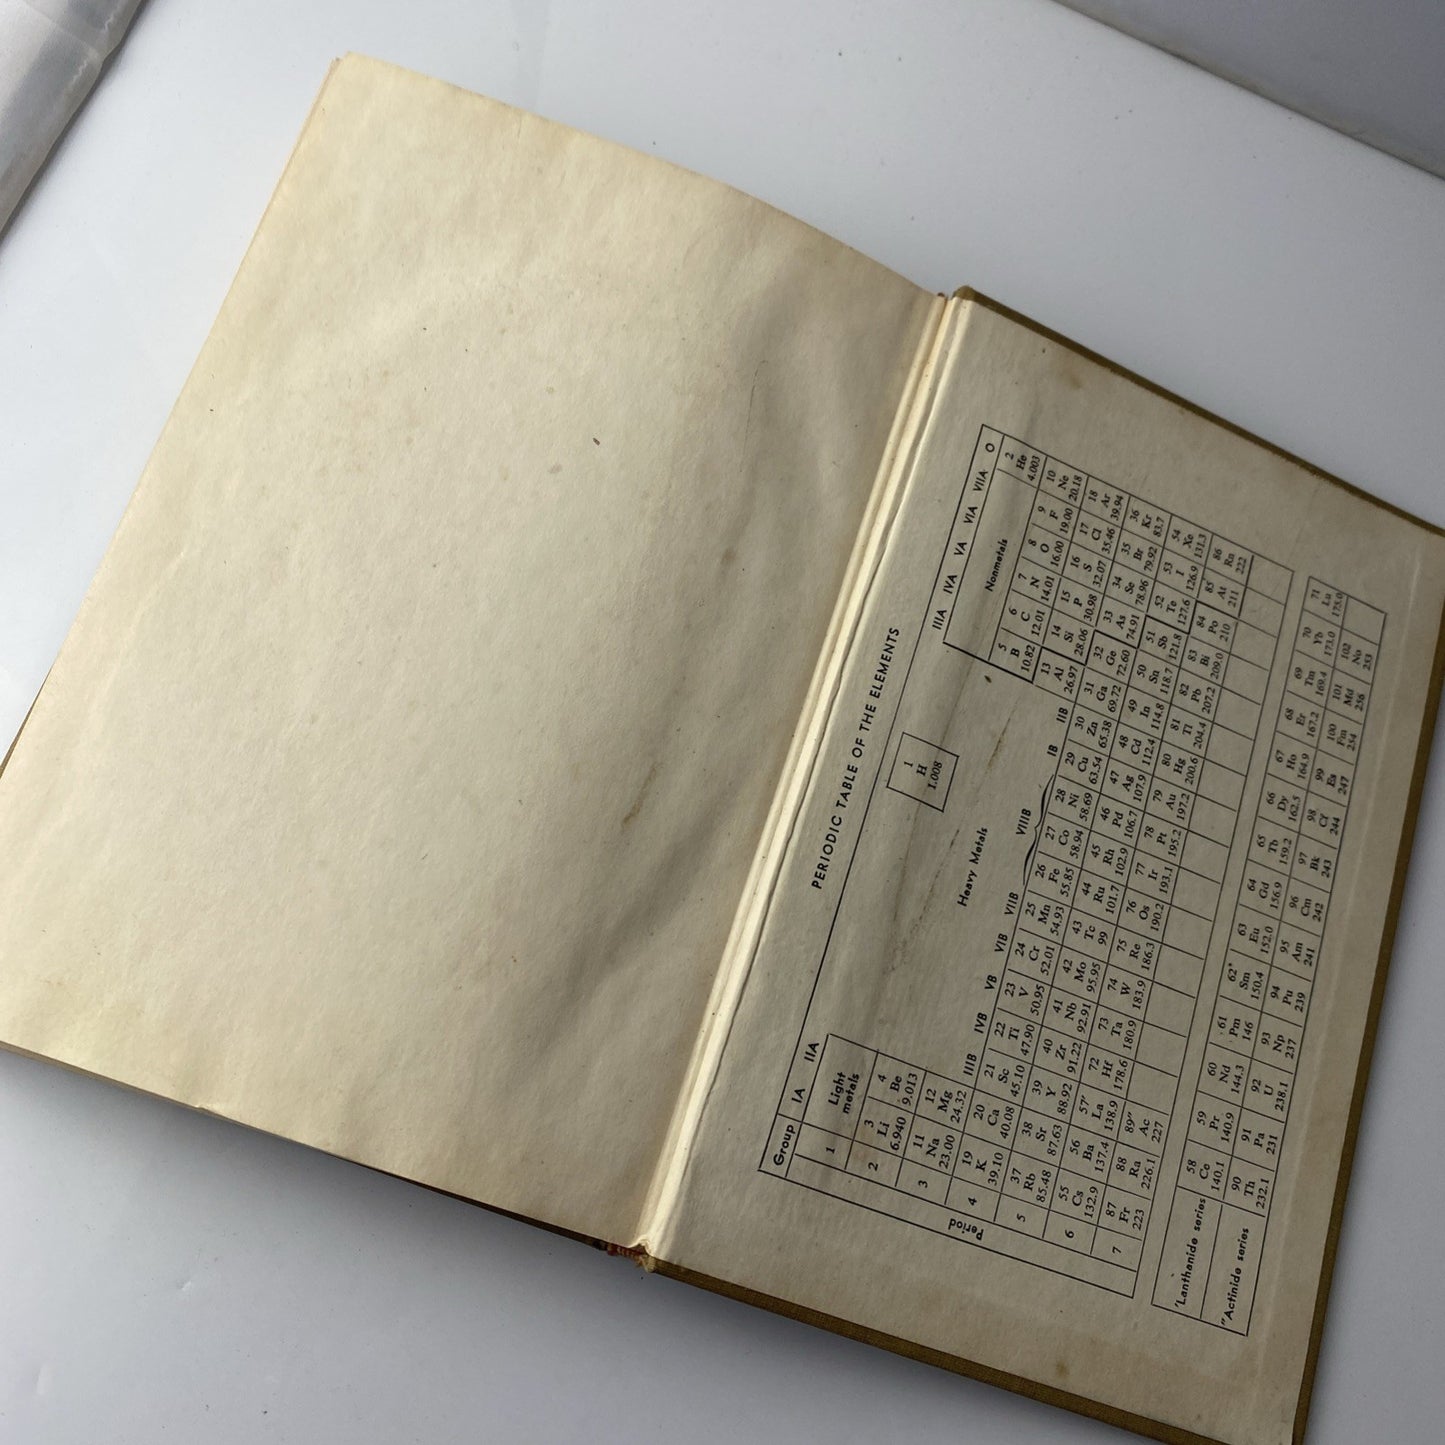 PERIODIC TABLE OF THE ELEMENTS
Group IA IIA IIIA IVA VA VIA VIIA O
1 Light metals 1 H 1.008 Nonmetals 2 He 4.003
2 3 Li 6.940 4 Be 9.013 Heavy Metals 5 B 10.82 6 C 12.01 7 N 14.01 8 O 16.00 9 F 19.00 10 Ne 20.18
3 11 Na 23.00 12 Mg 24.32 IIIB IVB VB VIB VIIB VIIIB IB IIB 13 Al 26.97 14 Si 28.06 15 P 30.98 16 S 32.07 17 Cl 35.46 18 Ar 39.94
4 19 K 39.10 20 Ca 40.08 21 Sc 45.10 22 Ti 47.90 23 V 50.95 24 Cr 52.01 25 Mn 54.93 26 Fe 55.85 27 Co 58.94 28 Ni 58.69 29 Cu 63.54 30 Zn 65.38 31 Ga 69.72 32 Ge 72.60 33 As 74.91 34 Se 78.96 35 Br 79.92 36 Kr 83.7
5 37 Rb 85.48 38 Sr 87.63 39 Y 88.92 40 Zr 91.22 41 Nb 92.91 42 Mo 95.95 43 Tc 99 44 Ru 101.7 45 Rh 102.9 46 Pd 106.7 47 Ag 107.9 48 Cd 112.4 49 In 114.8 50 Sn 118.7 51 Sb 121.8 52 Te 127.6 53 I 126.9 54 Xe 131.3
6 55 Cs 132.9 56 Ba 137.4 57' La 138.9 72 Hf 178.6 73 Ta 180.9 74 W 183.9 75 Re 186.3 76 Os 190.2 77 Ir 193.1 78 Pt 195.2 79 Au 197.2 80 Hg 200.6 81 Tl 204.4 82 Pb 207.2 83 Bi 209.0 84 Po 210 85 At 211 86 Rn 222
7 87 Fr 223 88 Ra 226.1 89" Ac 227
Period
'Lanthanide series 58 Ce 140.1 59 Pr 140.9 60 Nd 144.3 61 Pm 146 62 Sm 150.4 63 Eu 152.0 64 Gd 156.9 65 Tb 159.2 66 Dy 162.5 67 Ho 164.9 68 Er 167.2 69 Tm 169.4 70 Yb 173.0 71 Lu 175.0
"Actinide series 90 Th 232.1 91 Pa 231 92 U 238.1 93 Np 237 94 Pu 239 95 Am 241 96 Cm 242 97 Bk 243 98 Cf 244 99 Es 247 100 Fm 254 101 Md 256 102 No 253